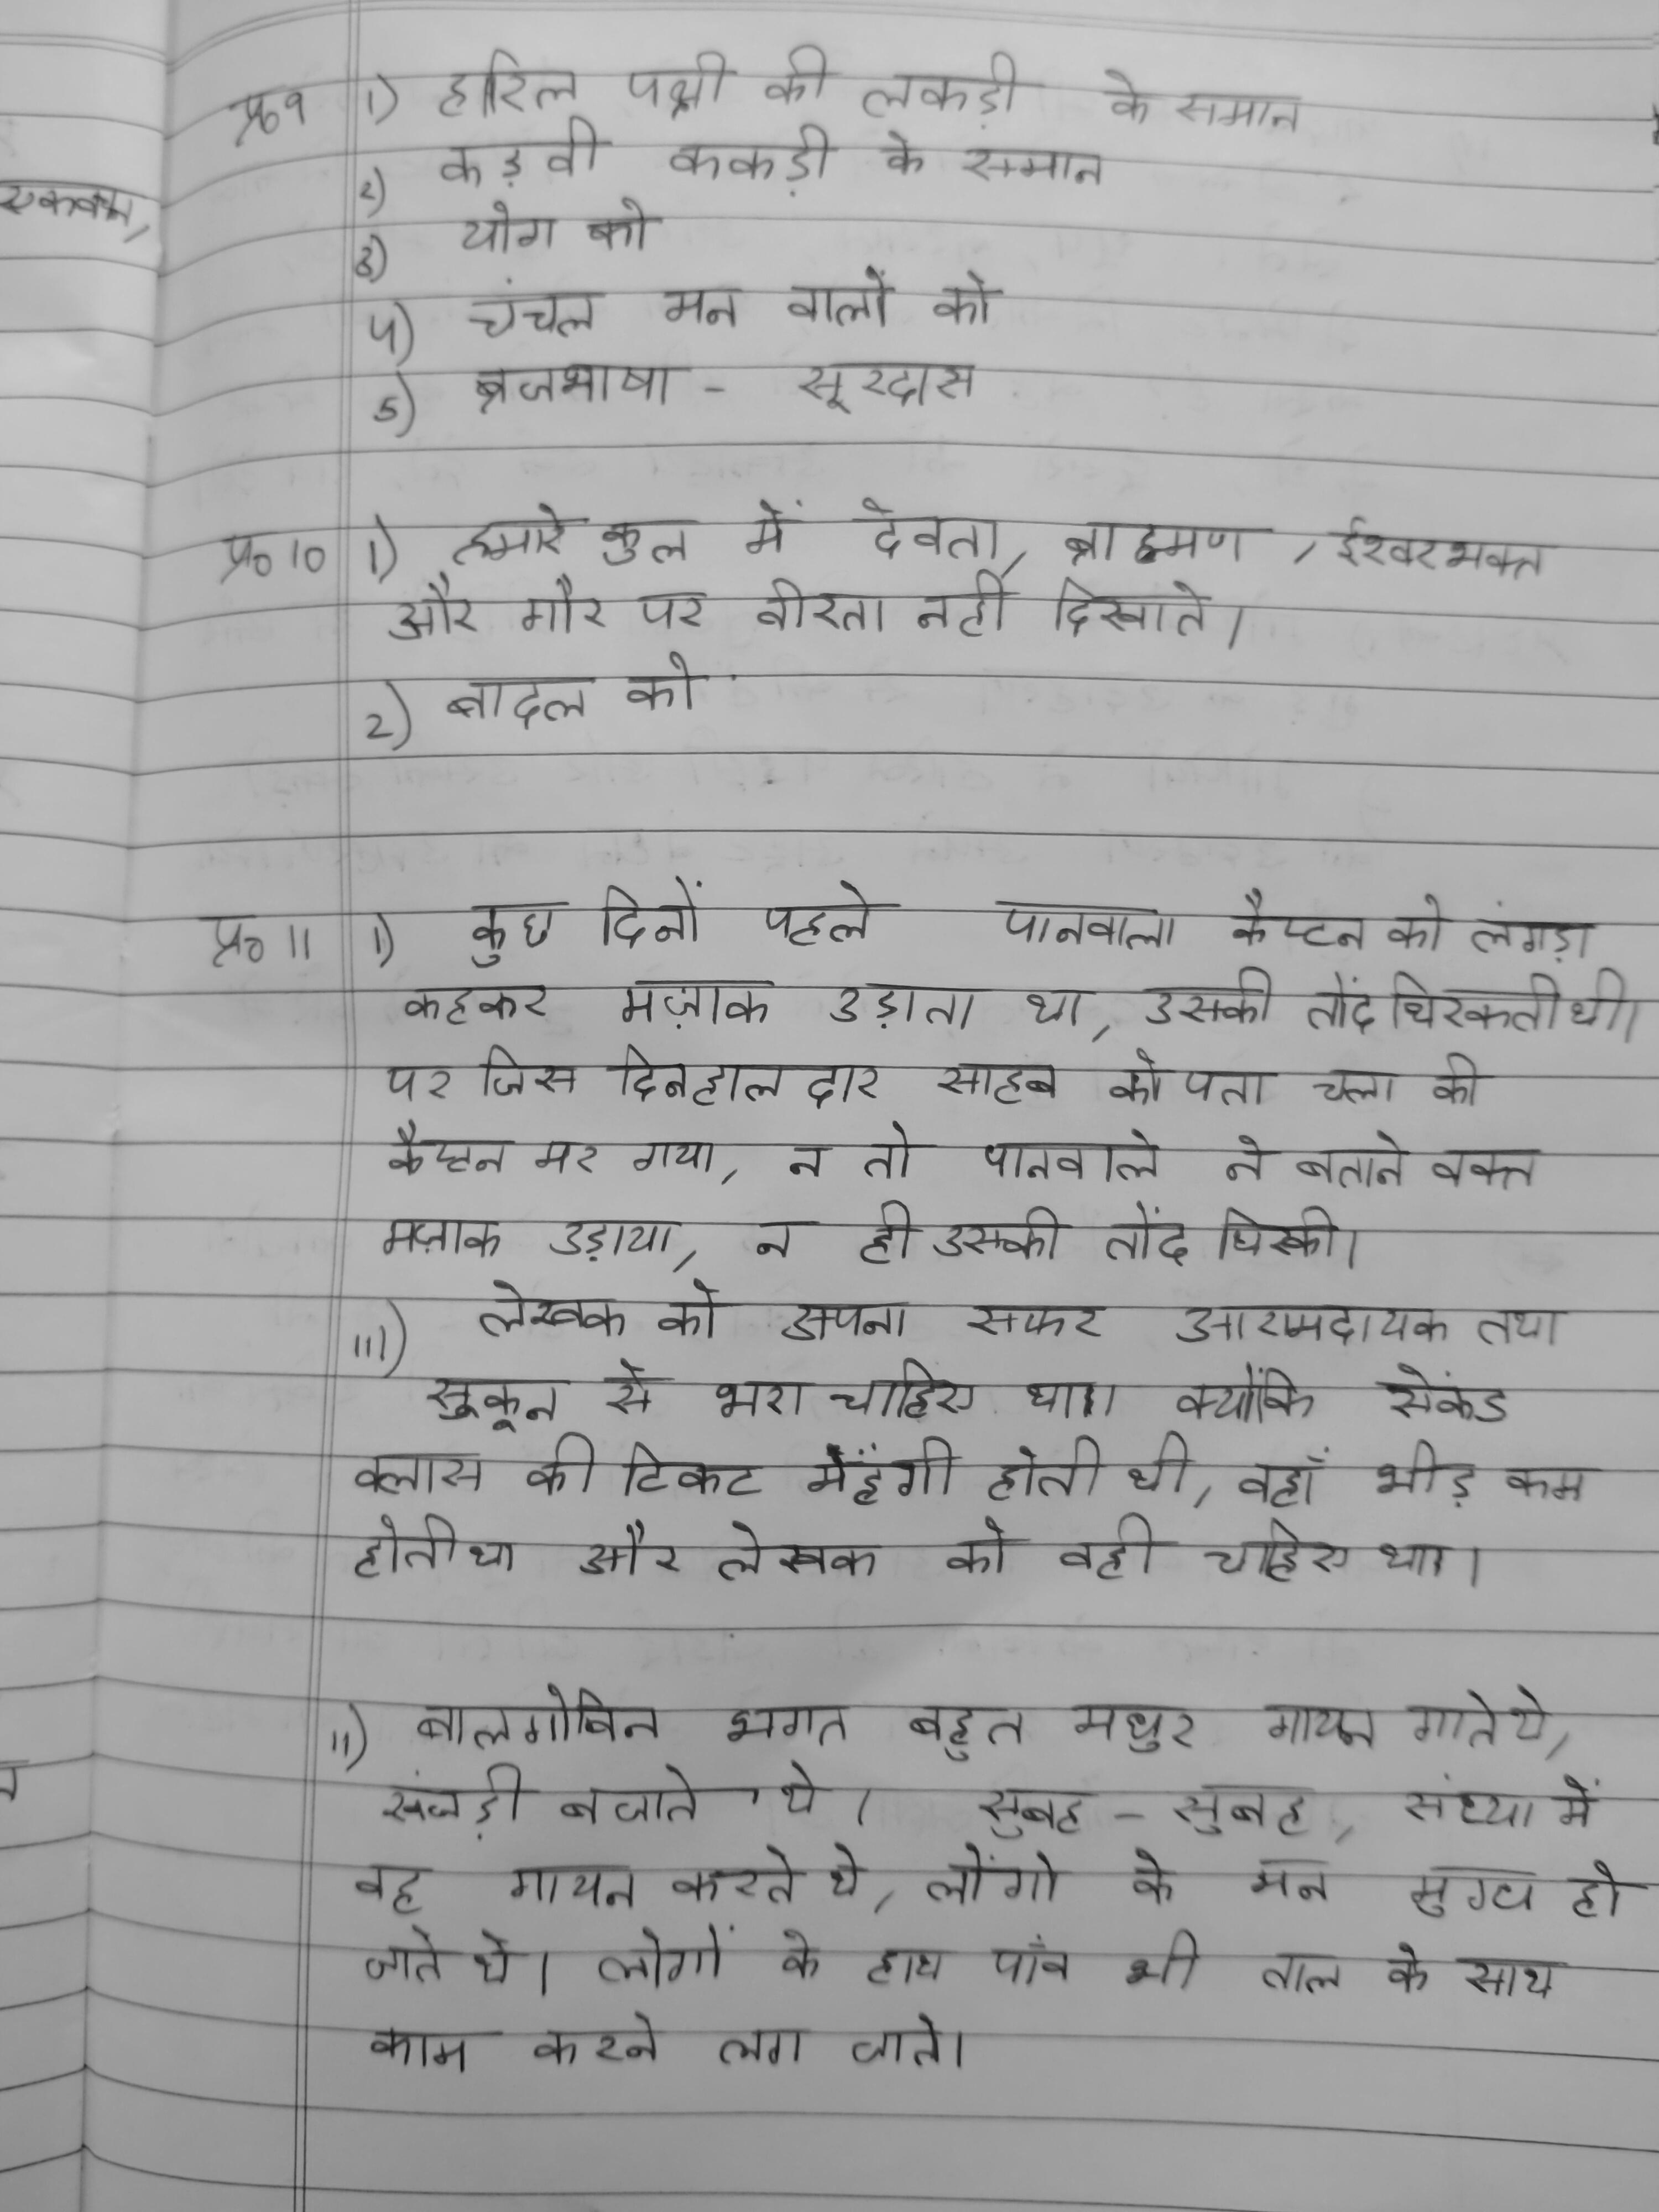 प्र०9 1) हारिल पक्षी की लकड़ी के समान
2) कड़वी ककड़ी के समान
3) योग को
4) चंचल मन वालों को
5) ब्रजभाषा - सूरदास
प्र० 10 1) हमारे कुल में देवता, ब्राह्मण, ईश्वरभक्त
और गौर पर वीरता नहीं दिखाते।
2) बादल को
प्र० 11 1) कुछ दिनों पहले पानवाला कैप्टन को लंगड़ा
कहकर मज़ाक उड़ाता था, उसकी तोंद थिरकती थी।
पर जिस दिन हालदार साहब को पता चला की
कैप्टन मर गया, न तो पानवाले ने बताने वक्त
मज़ाक उड़ाया, न ही उसकी तोंद
iii) लेखक को अपना सफर आरामदायक तथा
सुकून से भरा चाहिए था। क्योंकि सेकंड
क्लास की टिकट मेंहँगी होती थी, वहाँ भीड़ कम
होती था और लेखक को वही चाहिए था।
ii) बालगोबिन भगत बहुत मधुर गायन गाते थे,
खंजड़ी बजाते थे। सुबह - सुबह, संध्या में
वह गायन करते थे, लोंगो के मन मुग्ध हो
जाते थे। लोगों के हाथ पाँव भी ताल के साथ
काम करने लग जाते।